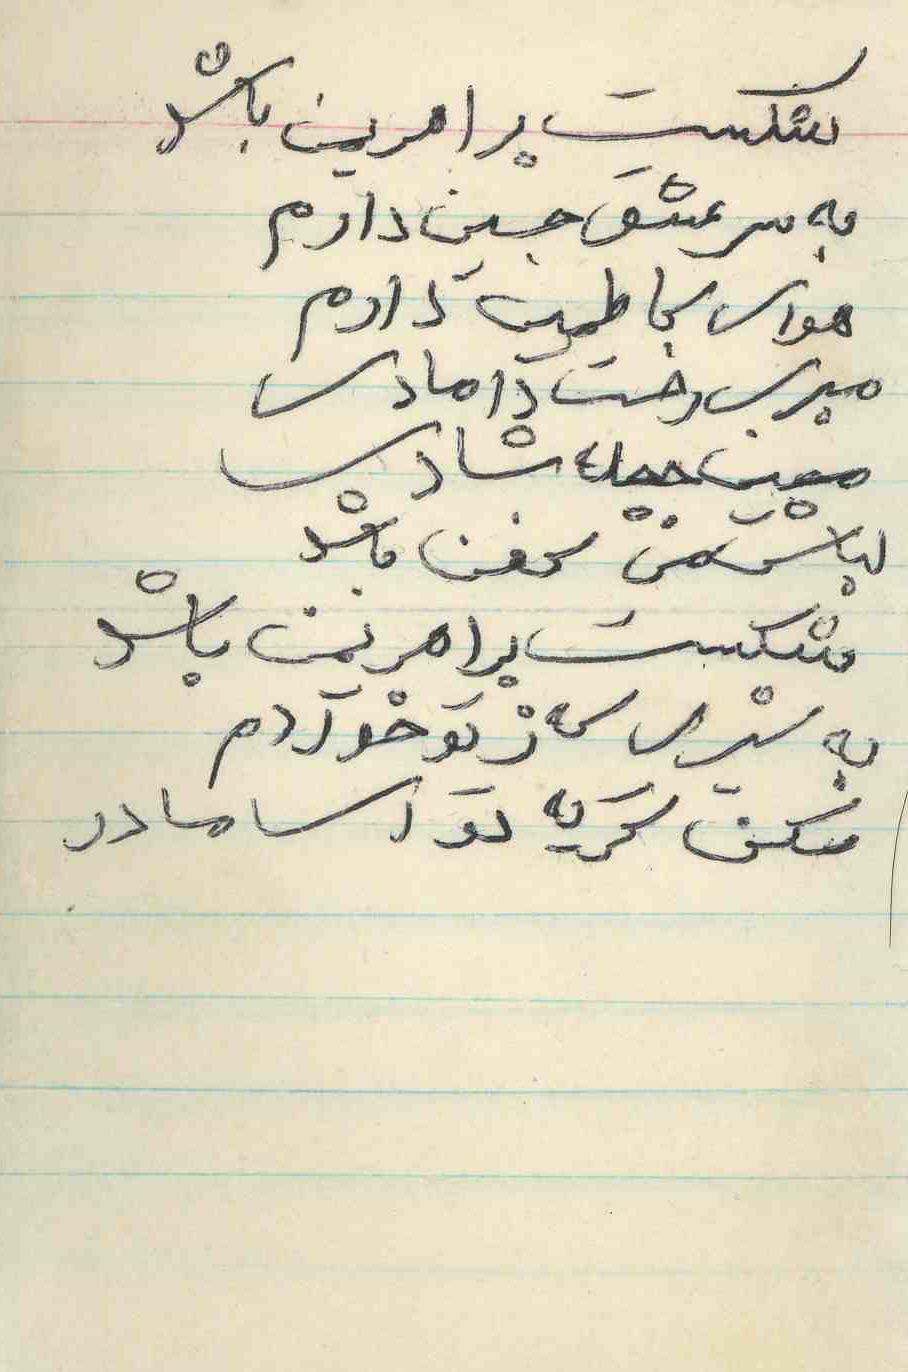 شکست بر اهریمن باشد
به سر عشق حسین دارم
هوای کاظمین دارم
مبری رخت دامادی
مچین حجله شادی
لباس من کفن باشد
شکست بر اهریمن باشد
به شیری که از تو خوردم
مکن گریه تو ای مادر